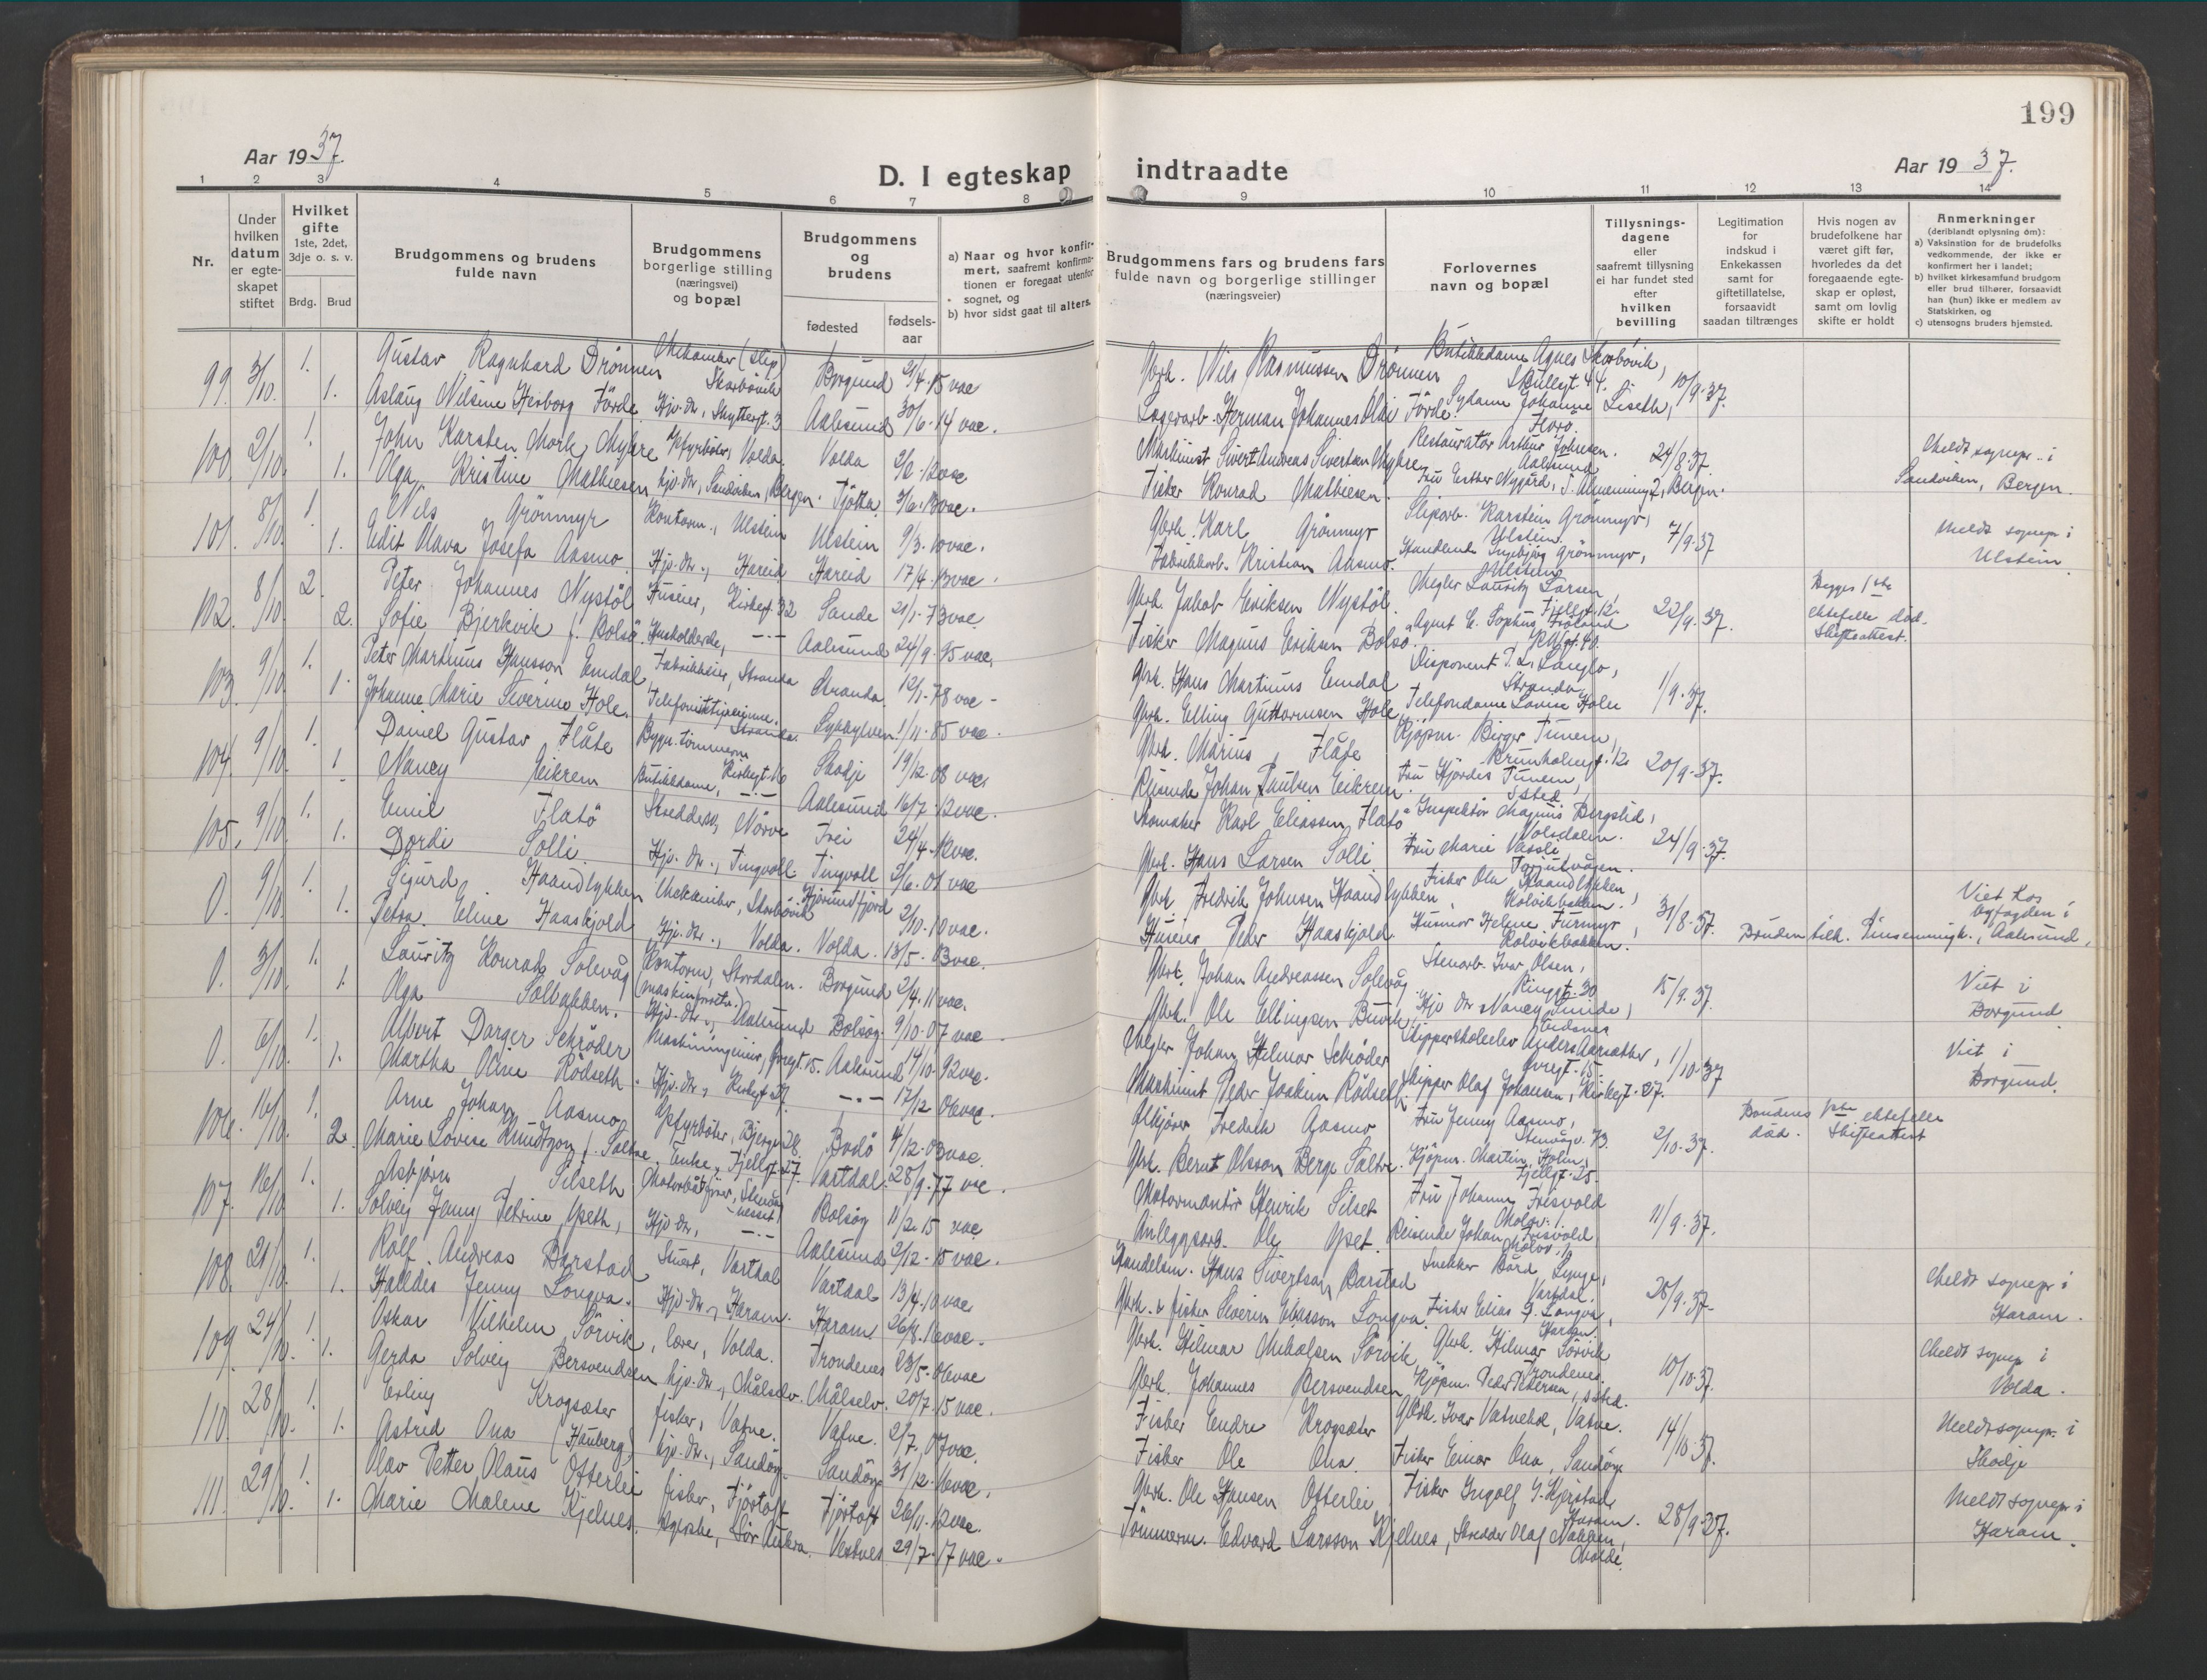 199
Aar 1937.
D. I egteskap indtraadte
Aar 1937.
1 2 3 4 5 6 7 8 9 10 11 12 13 14
Nr.
Under hvilken datum er egte-skapet stiftet
Hvilket gifte 1ste, 2det, 3dje o. s. v.
Brdg. Brud
Brudgommens og brudens fulde navn
Brudgommens borgerlige stilling (næringsvei) og bopæl
Brudgommens og brudens
fødested
fødsels-aar
a) Naar og hvor konfir-mert, saafremt konfirma-tionen er foregaat utenfor sognet, og
b) hvor sidst gaat til alters.
Brudgommens fars og brudens fars fulde navn og borgerlige stillinger (næringsveier)
Forlovernes navn og bopæl
Tillysnings-dagene eller saafremt tillysning ei har fundet sted efter hvilken bevilling
Legitimation for indskud i Enkekassen samt for giftetillatelse, forsaavidt saadan tiltrænges
Hvis nogen av brudefolkene har været gift før, hvorledes da det foregaaende egte-skap er opløst, samt om lovlig skifte er holdt
Anmerkninger (deriblandt oplysning om):
a) Vaksination for de brudefolks vedkommende, der ikke er konfirmert her i landet;
b) hvilket kirkesamfund brudgom eller brud tilhører, forsaavidt han (hun) ikke er medlem av Statskirken, og
c) utensogns bruders hjemsted.
99. 3/10. 1. Gustav Ragnhard Drönnen Mekaniker (slip) Skarbövik Borgund 21/4-15 vac Gbrk. Nils Rasmussen Drönnen Butikkdame Agnes Skarbövik, 10/9-37.
1. Aslaug Nilsine Herborg Förde Hjv. dtr., Skytterst. 3 Aalesund 30/6-14 vac. Lagerarb. Herman Johannes Förde. Sydame Johanne Liseth, Florö.
100. 2/10. 1. John Karsten Mork Myhre Fyrböter, Volda. Volda 2/2-12 vac Maskinist Sivert Andreas Sivertsen Myhre Restauratör Arthur Johnsen. Aalesund 24/8-37. Meldt sognepr. i
1. Olga Kristine Mathiesen hjv. dtr., Sandviken, Bergen. Tjötta. 3/6-13 vac. Fisker Konrad Mathiesen. Fru Esther Nygård, Bergen. Sandviken, Bergen.
101. 8/10. 1. Nils Grönmyr Kontorm., Ulstein Ulstein 9/3-10 vac. Gbrk. Karl Grönmyr Sliparb. Karstein Grönmyr, Ulstein. 7/9-37 Meldt sognepr. i
1. Edit Olava Josefa Aasmo. Hjv. dtr., Hareid Hareid 17/4-13 vac. Fabrikkarb. Kristian Aasmo. Ingebjørg Grönmyr, Ulstein. Ulstein.
102. 8/10. 2. Peter Johannes Nystöl Huseier, Kirkegt. 32 Sande 21/1-73 vac. Gbrk. Jakob Eriksen Nystöl. Megler Lauritz Larsen, Fjellgt. 12. 22/9-37. Begges 1ste ektefelle död.
2. Sofie Bjerkvik f. Bolsö. Husholderske, —·— Aalesund 24/9-95 vac. Fisker Magnus Eriksen Bolsö. Agent E. Sophus Fröland Skifteattest.
103. 9/10. 1. Peter Martinus Hansson Emdal, Fabrikkeier, Stranda Stranda. 12/1-78 vac. Gbrk. Hans Martinus Emdal Disponent P. L. Langlo, Stranda 1/9-37.
1. Johanne Marie Severine Hole. Telefonbestyrerinne. Stranda. Sykkylven 1/11-85 vac. Gbrk. Elling Guttormsen Hole, Telefondame Lovise Holen
104. 9/10. 1. Daniel Gustav Flåte Bygn. tömmerm Kirkegt. 16 Skodje 19/12-08 vac. Gbrk. Marius Flåte Kjöpm. Birger Tunem, Brunholmgt. 12 20/9-37.
1. Nancy Eikrem Butikkdame, —·— Aalesund 16/7-12 vac. Reisende Johan Paulsen Eikrem. Fru Hjördis Tunem, s. sted.
105. 9/10. 1. Emil Flatö Skredders., Nörve Frei 24/4-12 vac. Skomaker Karl Eliassen Flatö Inspektör Magnus Bergslid, Volsdalen. 24/9-37.
1. Dordi Solli. Hjv. dtr., Tingvoll. Tingvoll 3/6-01 vac Gbrk. Hans Larsen Solli. Fru Marie Vassli
0. 9/10. 1. Sigurd Haandlykken Mekaniker, Skarbövik Hjörundfjord 2/10-10 vac. Gbrk. Fredrik Johnsen Haandlykken, Fisker Ola Haandlykken, Kolvikbakken. 31/8-37. Viet hos byfogden i
1. Petra Eline Haaskjold Hjv. dtr., Volda. Volda. 13/5-03 vac. Huseier Peder Haaskjold. Husmor Helene Furmyr, Kolvikbakken. Bruden tilh. Pinsemenigh., Aalesund.
0. 3/10. 1. Lauritz Konrad Solevåg Kontorm, Stordalen. Borgund 2/4-11 vac. Gbrk. Johan Andreassen Solevåg Stenarb. Ivar Olsen, Ringgt. 30 15/9-37. Viet i
1. Olga Solbakken. Hjv. dtr., Aalesund Bolsöy 9/10-07 vac Gbrk. Ole Ellingsen Buvik, Hjv. dtr. Nancy Borgund.
0. 6/10. 1. Albert Darger Schröder Maskiningeniör, Aalesund 14/10-92 vac. Megler Johan Hilmar Schröder Skipperskoleelev Anders 1/10-37 Viet i
1. Martha Oline Rödseth. Hjv. dtr., Kirkegt. 27. —·— 17/12-06 vac. Maskinist Peder Joakim Rödseth. Skipper Olaf Johansen, Kirkegt. 27. Borgund.
106. 16/10. 1. Arne Johan Aasmo Fyrböter, Bjergv. 28. Bodö 4/12-03 vac. Fredrik Aasmo Fru Jenny Aasmo, 2/10-37. Brudens 1ste ektefelle död. Skifteattest
2. Marie Lovise Knudtzon f. Saltre. Enke, Fjellgt. 27. Vartdal. 28/9-77 vac. Gbrk. Bernt Olsson Berge Saltre. Kjöpm. Martin Holm, Fjellgt. 25.
107. 16/10. 1. Asbjörn Silseth Motorbåtförer, Bolsöy 11/2-15 vac Motormontör Henrik Silset Fru Johanne Frisvold 11/9-37.
1. Solveig Jenny Petrine Ypseth, Hjv. dtr, —·— Aalesund 2/12-15 vac. Anleggsarb. Ole Ypset. Reisende Johan Frisvold
108. 21/10. 1. Rolf Andreas Barstad Vartdal Vartdal 13/4-10 vac. Handelsm. Hans Sivertsen Barstad Snekker Bård Lynge, Vartdal 28/9-37. Meldt sognepr i
1. Halldis Jenny Longva. Hjv. dtr., Haram. Haram 26/8-16 vac. Gbrk. & fisker Severin Eliasson Longva. Fisker Elias Longva, Haram. Haram.
109. 24/10. 1. Oskar Vilhelm Sörvik, lærer, Volda. Trondenes 23/5-06 vac Gbrk. Hilmar Mikalsen Sörvik, Gbrk. Hilmar Sörvik Trondenes. 10/10-37. Meldt sognepr i
1. Gerda Solveig Bersvendsen hjv. dtr., Målselv. Målselv. 20/7-15 vac. Gbrk. Johannes Bersvendsen, Kjöpm. Peder Pettersen, s. sted. Volda.
110. 28/10. 1. Erling Krogsæter fisker, Vatne. Vatne. 2/7-07 vac. Fisker Endre Krogsæter Gbrk. Ivar Vatnehol, Vatne. 14/10-37. Meldt sognepr. i
1. Astrid Ona (Hauberg) hjv. dtr., Sandöy. Sandöy 31/12-16 vac. Fisker Ole Ona. Fisker Einar Ona, Sandöy Skodje
111. 29/10. 1. Olav Petter Olaus Otterlei fisker, Fjörtoft Fjörtoft 26/11-12 vac. Gbrk. Ole Hansen Otterlei, Fisker Ingolf G. Hjerstad, Haram. 28/9-37. Meldt sognepr i
1. Marie Malene Kjelnes. Sör Aukra. Vestnes 29/7-17 vac. Tömmerm. Edvard Larsson Kjelnes, Skredder Olaf Nakken, Molde. Haram.